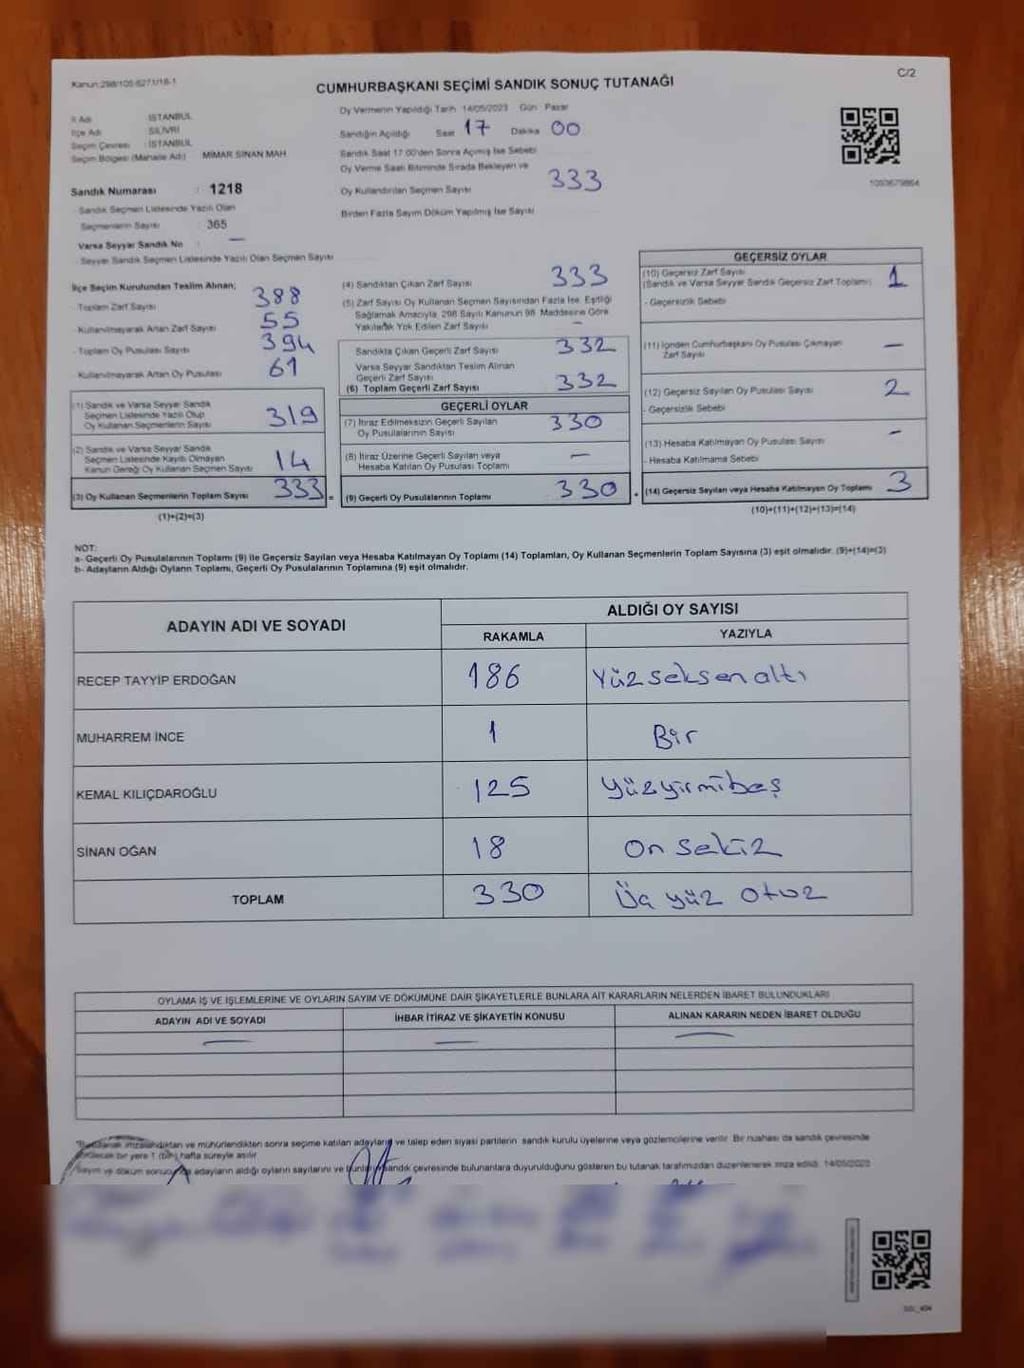 Kanun:298/105-6271/18-1
C/2
CUMHURBAŞKANI SEÇİMİ SANDIK SONUÇ TUTANAĞI
İl Adı : İSTANBUL
İlçe Adı : SİLİVRİ
Seçim Çevresi : İSTANBUL
Seçim Bölgesi (Mahalle Adı) : MİMAR SİNAN MAH
Sandık Numarası : 1218
Sandık Seçmen Listesinde Yazılı Olan
Seçmenlerin Sayısı : 365
Varsa Seyyar Sandık No : —
Seyyar Sandık Seçmen Listesinde Yazılı Olan Seçmen Sayısı
Oy Vermenin Yapıldığı Tarih 14/05/2023 Gün Pazar
Sandığın Açıldığı Saat 17 Dakika 00
Sandık Saat 17:00'den Sonra Açılmış İse Sebebi
Oy Verme Saati Bitiminde Sırada Bekleyen ve
Oy Kullandırılan Seçmen Sayısı 333
Birden Fazla Sayım Döküm Yapılmış İse Sayısı
İlçe Seçim Kurulundan Teslim Alınan;
- Toplam Zarf Sayısı 388
- Kullanılmayarak Artan Zarf Sayısı 55
- Toplam Oy Pusulası Sayısı 394
- Kullanılmayarak Artan Oy Pusulası 61
(1) Sandık ve Varsa Seyyar Sandık
Seçmen Listesinde Yazılı Olup
Oy Kullanan Seçmenlerin Sayısı 319
(2) Sandık ve Varsa Seyyar Sandık
Seçmen Listesinde Kayıtlı Olmayan
Kanun Gereği Oy Kullanan Seçmen Sayısı 14
(3) Oy Kullanan Seçmenlerin Toplam Sayısı 333
(1)+(2)=(3)
(4) Sandıktan Çıkan Zarf Sayısı 333
(5) Zarf Sayısı Oy Kullanan Seçmen Sayısından Fazla İse, Eşitliği
Sağlamak Amacıyla, 298 Sayılı Kanunun 98. Maddesine Göre
Yakılarak Yok Edilen Zarf Sayısı —
Sandıkta Çıkan Geçerli Zarf Sayısı 332
Varsa Seyyar Sandıktan Teslim Alınan
Geçerli Zarf Sayısı
(6) Toplam Geçerli Zarf Sayısı 332
GEÇERLİ OYLAR
(7) İtiraz Edilmeksizin Geçerli Sayılan
Oy Pusulalarının Sayısı 330
(8) İtiraz Üzerine Geçerli Sayılan veya
Hesaba Katılan Oy Pusulası Toplamı —
= (9) Geçerli Oy Pusulalarının Toplamı 330
GEÇERSİZ OYLAR
(10) Geçersiz Zarf Sayısı 1
(Sandık ve Varsa Seyyar Sandık Geçersiz Zarf Toplamı)
- Geçersizlik Sebebi
(11) İçinden Cumhurbaşkanı Oy Pusulası Çıkmayan —
Zarf Sayısı
(12) Geçersiz Sayılan Oy Pusulası Sayısı 2
- Geçersizlik Sebebi
(13) Hesaba Katılmayan Oy Pusulası Sayısı —
- Hesaba Katılmama Sebebi
+ (14) Geçersiz Sayılan veya Hesaba Katılmayan Oy Toplamı 3
(10)+(11)+(12)+(13)=(14)
NOT:
a- Geçerli Oy Pusulalarının Toplamı (9) ile Geçersiz Sayılan veya Hesaba Katılmayan Oy Toplamı (14) Toplamları, Oy Kullanan Seçmenlerin Toplam Sayısına (3) eşit olmalıdır. (9)+(14)=(3)
b- Adayların Aldığı Oyların Toplamı, Geçerli Oy Pusulalarının Toplamına (9) eşit olmalıdır.
ADAYIN ADI VE SOYADI
ALDIĞI OY SAYISI
RAKAMLA YAZIYLA
RECEP TAYYİP ERDOĞAN 186 Yüzseksenaltı
MUHARREM İNCE 1 Bir
KEMAL KILIÇDAROĞLU 125 Yüzyirmibeş
SİNAN OĞAN 18 On sekiz
TOPLAM 330 Üç yüz otuz
OYLAMA İŞ VE İŞLEMLERİNE VE OYLARIN SAYIM VE DÖKÜMÜNE DAİR ŞİKAYETLERLE BUNLARA AİT KARARLARIN NELERDEN İBARET BULUNDUKLARI
ADAYIN ADI VE SOYADI İHBAR İTİRAZ VE ŞİKAYETİN KONUSU ALINAN KARARIN NEDEN İBARET OLDUĞU
— — —
imzalandıktan ve mühürlendikten sonra seçime katılan adayların ve talep eden siyasi partilerin sandık kurulu üyelerine veya gözlemcilerine verilir. Bir nüshası da sandık çevresinde
bir yere 1 (bir) hafta süreyle asılır.
Sayım ve döküm adayların aldığı oyların sayılarını ve sandık çevresinde bulunanlara duyurulduğunu gösteren bu tutanak tarafımızdan düzenlenerek imza edildi. 14/05/2023